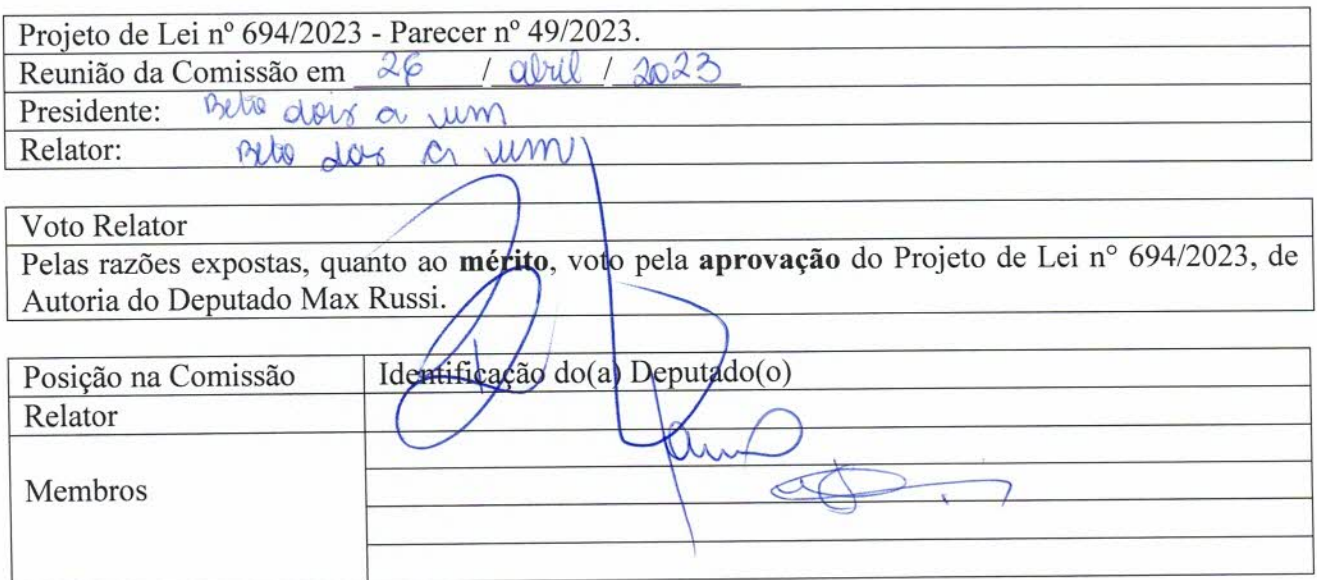 Projeto de Lei nº 694/2023 - Parecer nº 49/2023.
Reunião da Comissão em 26 / abril / 2023
Presidente: Beto dois a um
Relator: Beto dois a um
Voto Relator
Pelas razões expostas, quanto ao mérito, voto pela aprovação do Projeto de Lei n° 694/2023, de
Autoria do Deputado Max Russi.
Posição na Comissão Identificação do(a) Deputado(o)
Relator
Membros